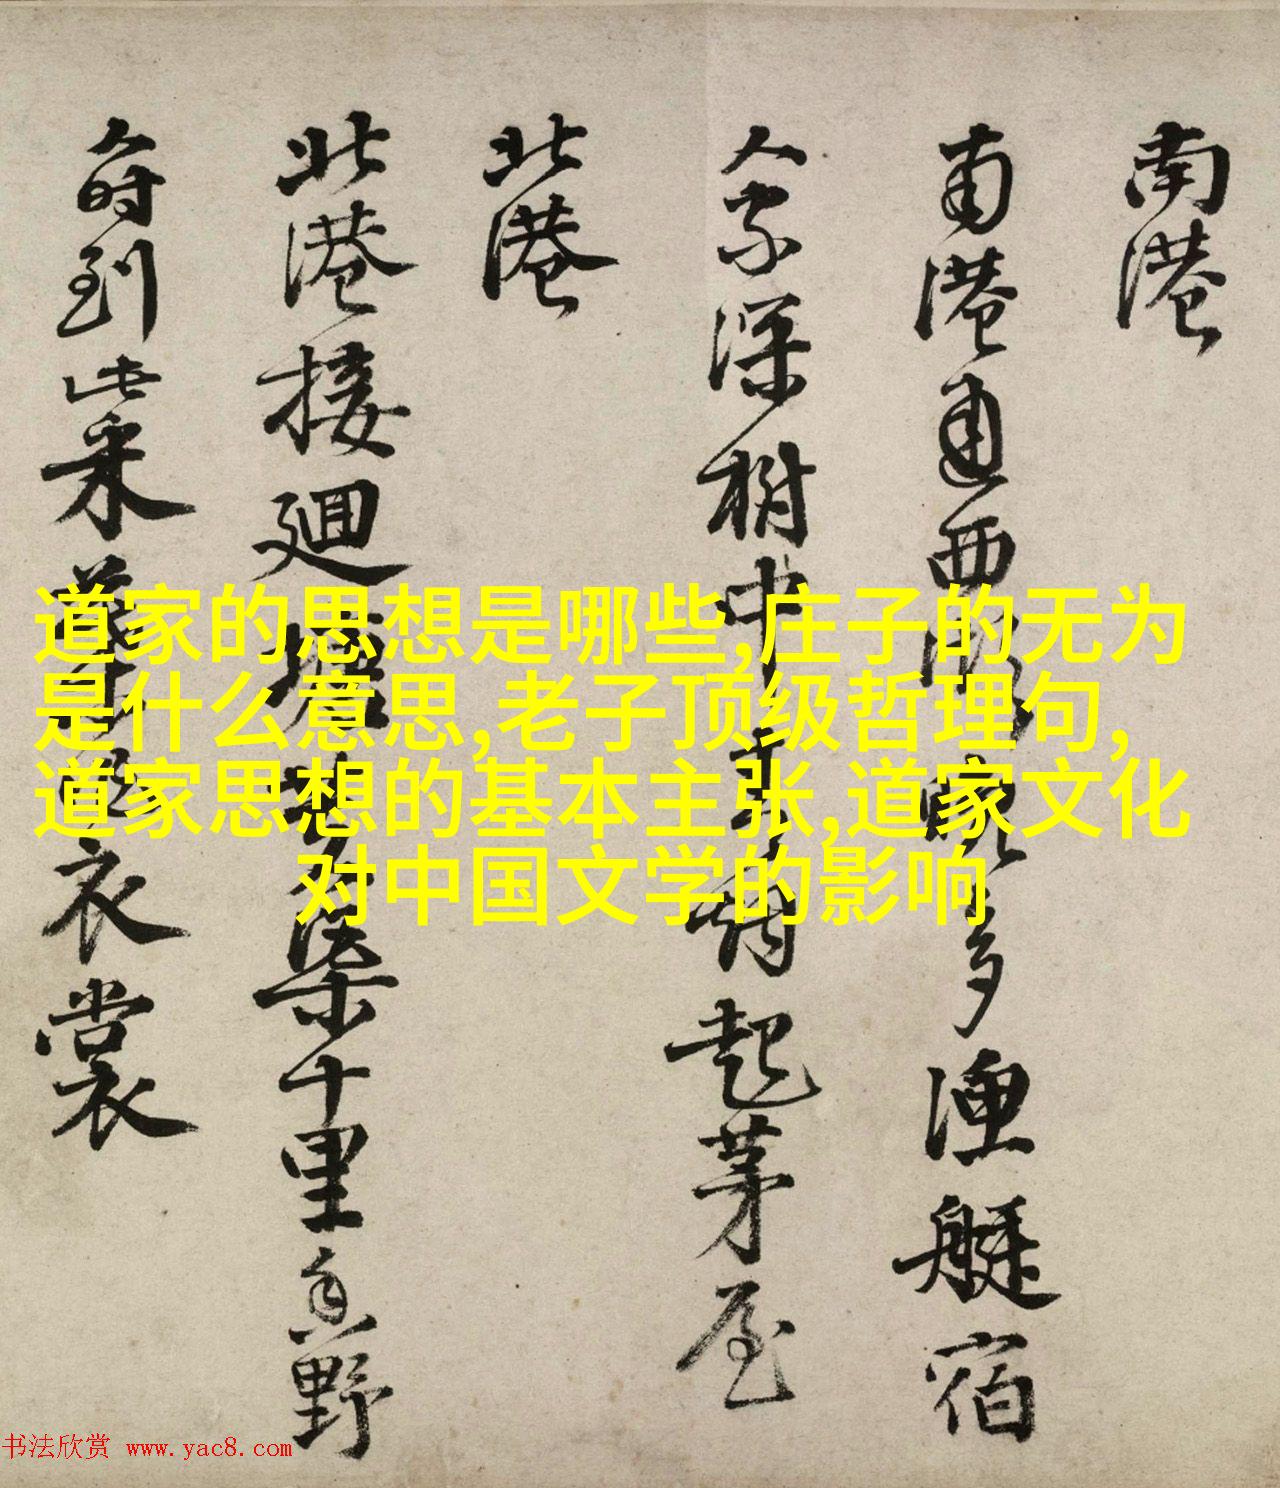 南港
南港通西湖晚多漁艇宿
人家深樹中起茅屋
北港
北港接迴塘芳渠十里香野
人時到此采衣裳
道家的思想是哪些,庄子的无为
是什么意思,老子顶级哲理句,
道家思想的基本主张,道家文化
对中国文学的影响
书法欣赏 www.yac8.com